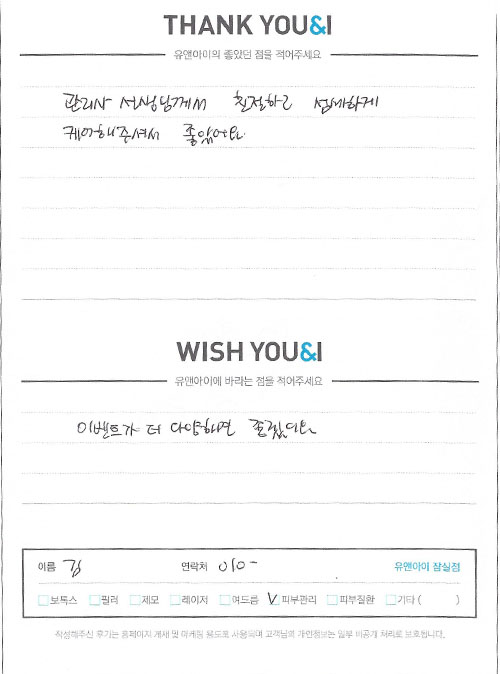 THANK YOU&I
유앤아이의 좋았던 점을 적어주세요
관리사 선생님께서 친절하고 섬세하게
케어해주셔서 좋았어요
WISH YOU&I
유앤아이에 바라는 점을 적어주세요
이벤트가 더 다양하면 좋겠어요
이름 김 연락처 010- 유앤아이 잠실점
보톡스 필러 제모 레이저 여드름 V 피부관리 피부질환 기타 ( )
작성해주신 후기는 홈페이지 게재 및 마케팅 용도로 사용되며 고객님의 개인정보는 일부 비공개 처리로 보호됩니다.